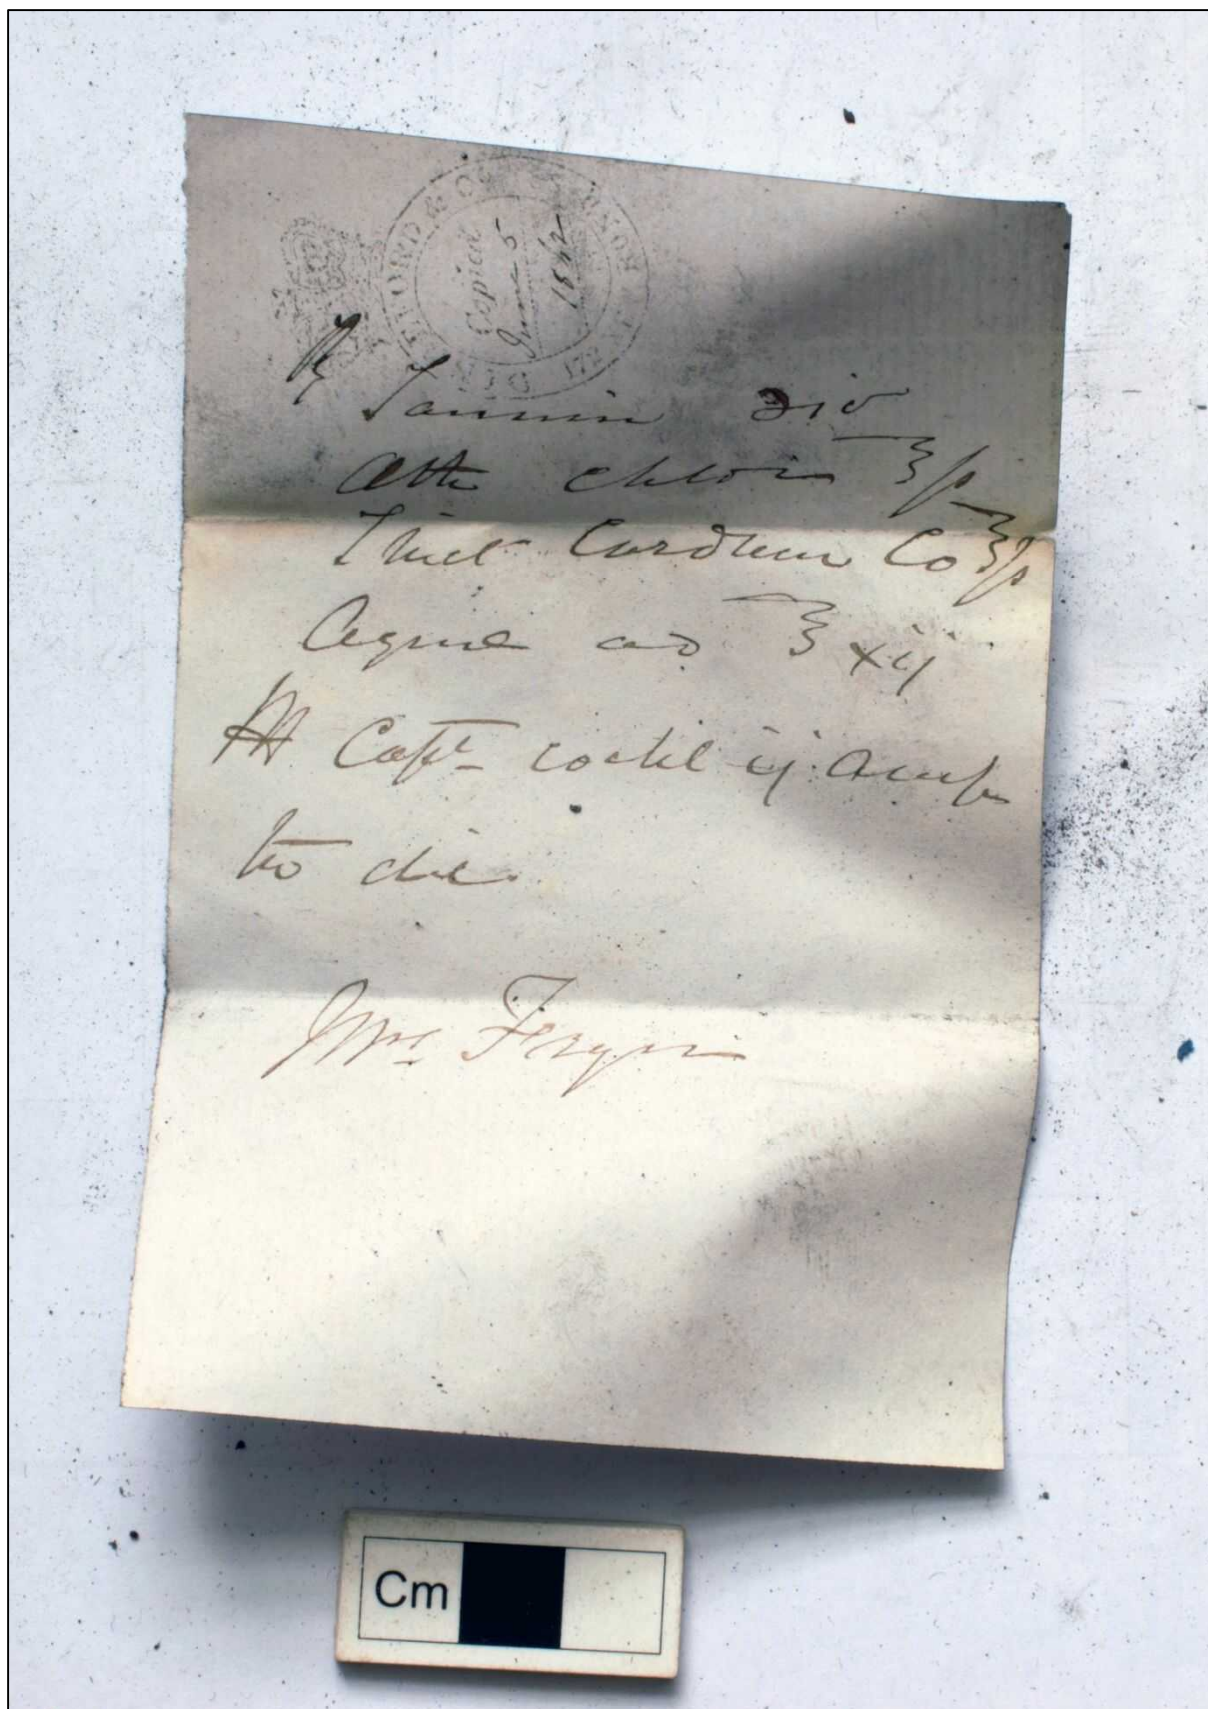 Copied
June 5
℞ Tannin ℈iv
Æth chlor ʒſs
Tinct Cardam Co ℥ſs
Aquæ ad ℥xij
Ft Capt cochl ij ampl
ter die
Mrs
Cm